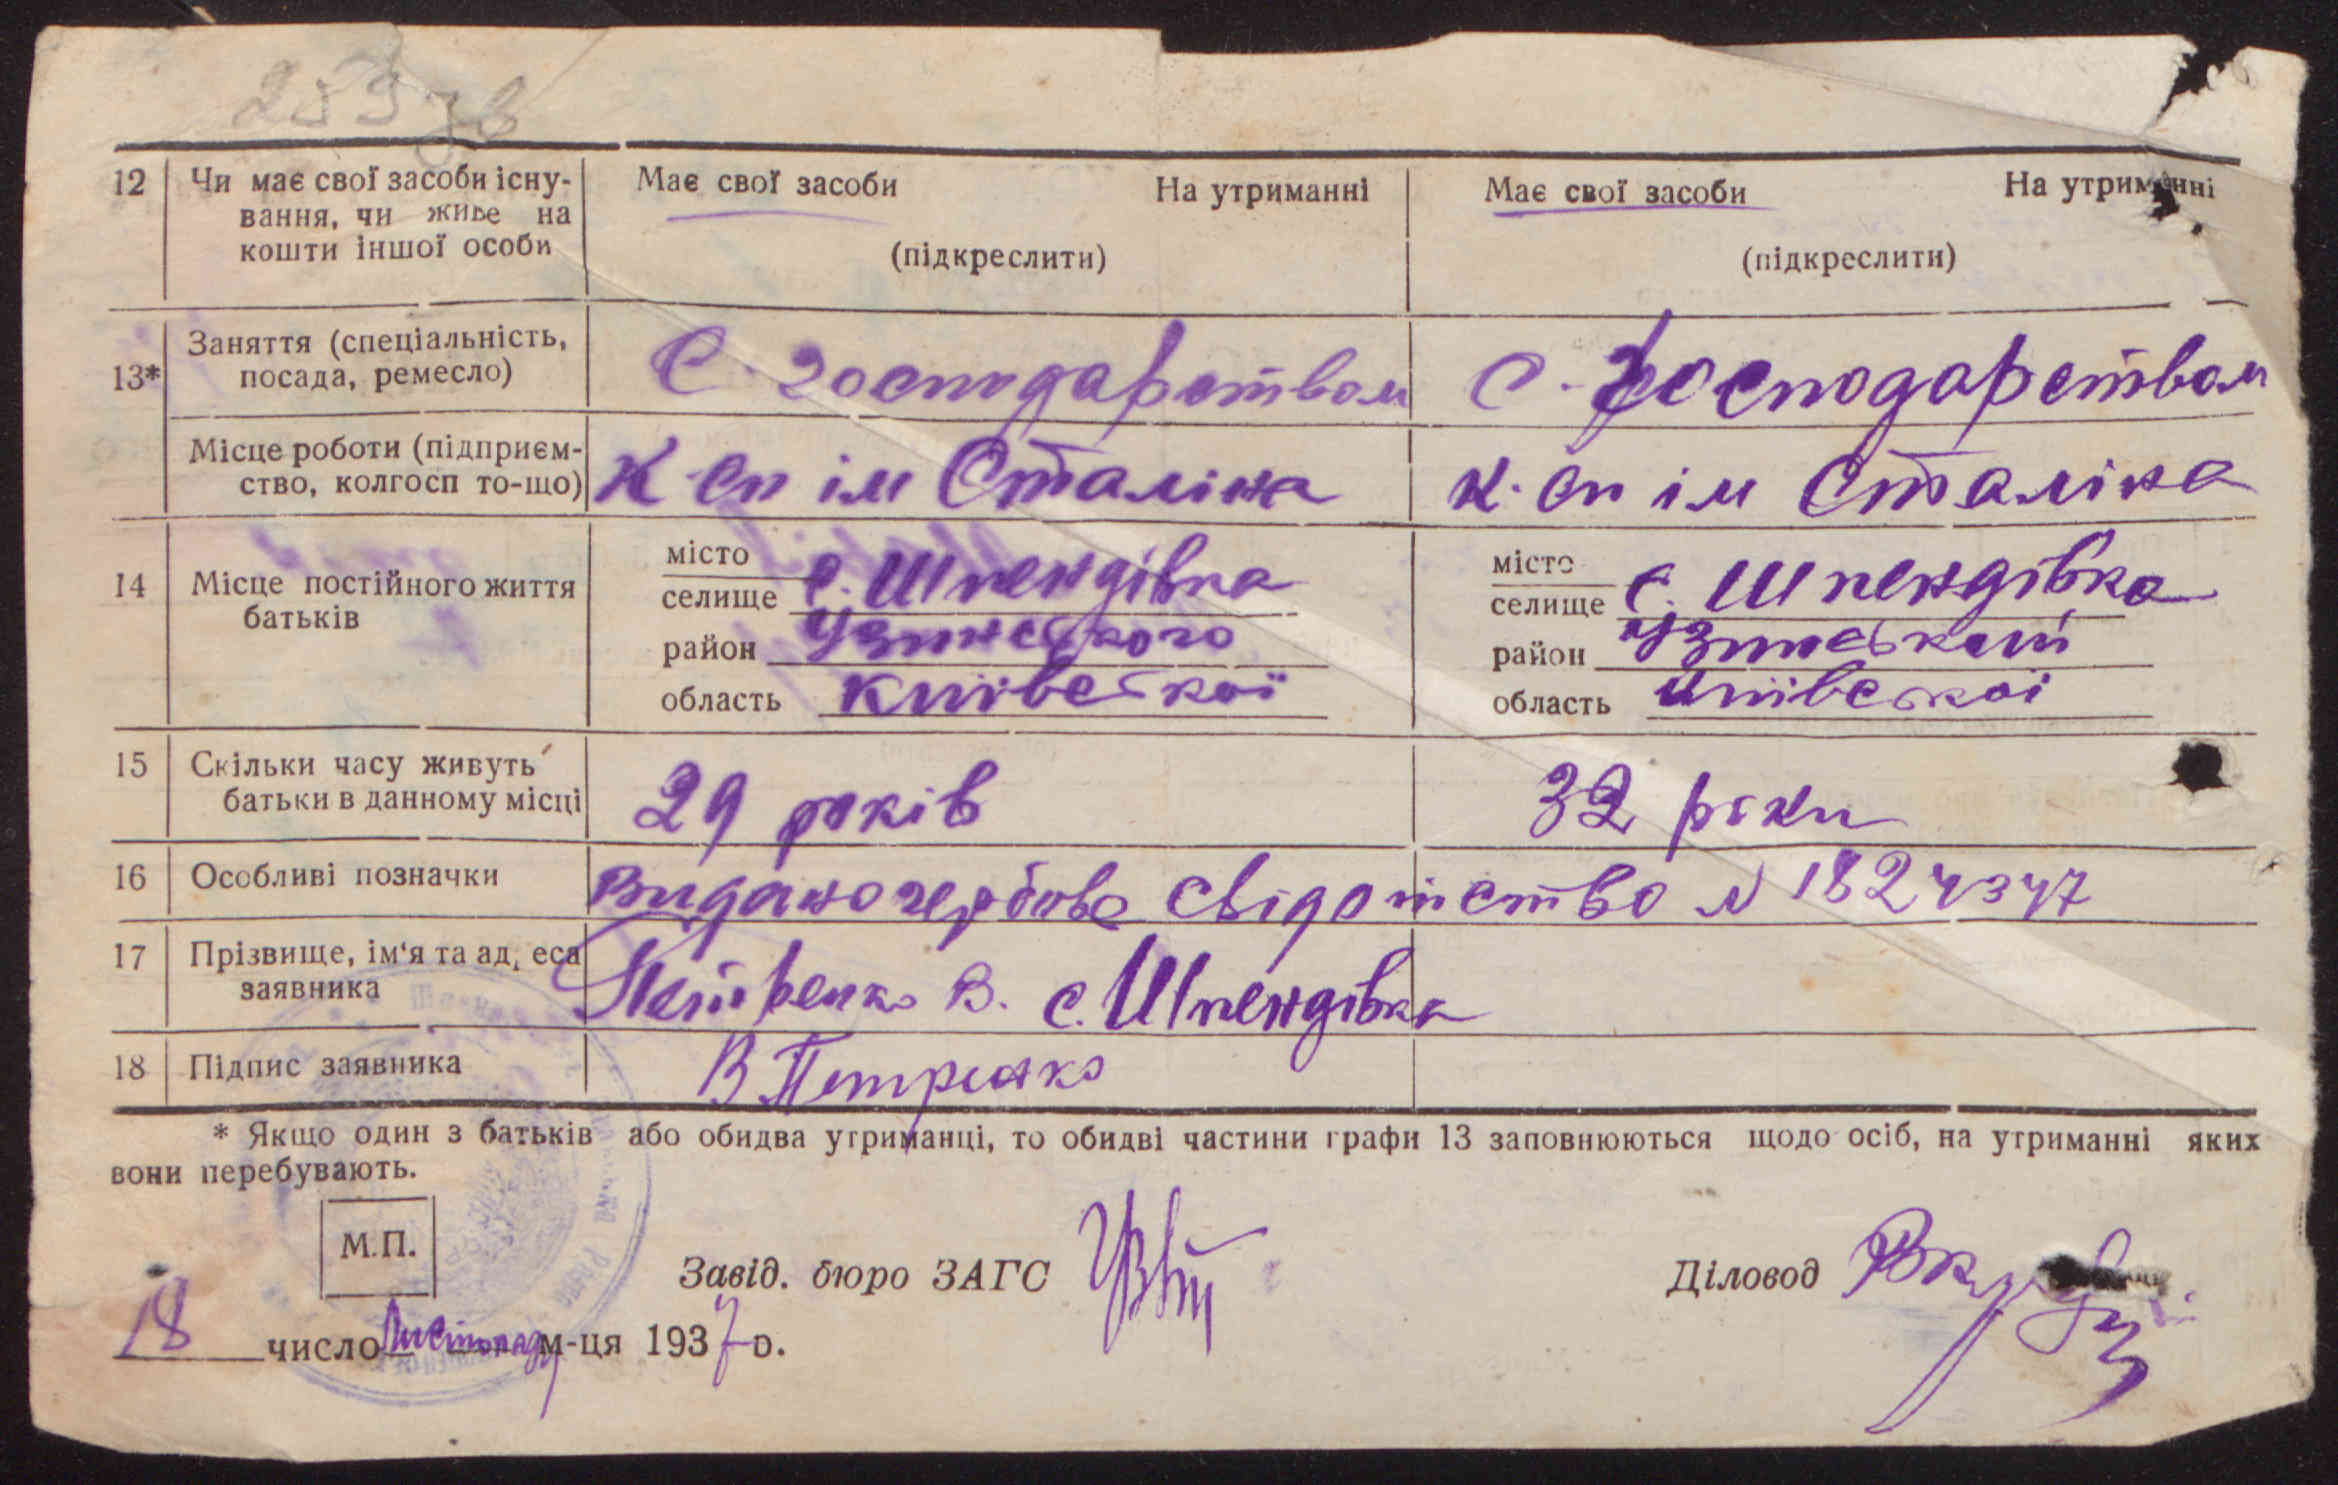 253 зв
12 Чи має свої засоби існу- Має свої засоби На утриманні Має свої засоби На утриманні
вання, чи живе на
кошти іншої особи (підкреслити) (підкреслити)
13* Заняття (спеціальність, С. господарством С. господарством
посада, ремесло)
Місце роботи (підприєм- К-сп ім Сталіна К.сп ім Сталіна
ство, колгосп то-що)
14 Місце постійного життя місто с. Шпендівка місто с. Шпендівка
батьків селище селище
район Узинського район Узинський
область Київської область Київської
15 Скільки часу живуть 29 років 32 роки
батьки в данному місці
16 Особливі позначки Видано гербове свідотство N 1824347
17 Прізвище, ім'я та ад еса Петренко В. с. Шпендівка
заявника
18 Підпис заявника В Петренко
* Якщо один з батьків або обидва утриманці, то обидві частини графи 13 заповнюються щодо осіб, на утриманні яких
вони перебувають.
М.П.
Завід. бюро ЗАГС Діловод
18 число Листопаду м-ця 1937 р.